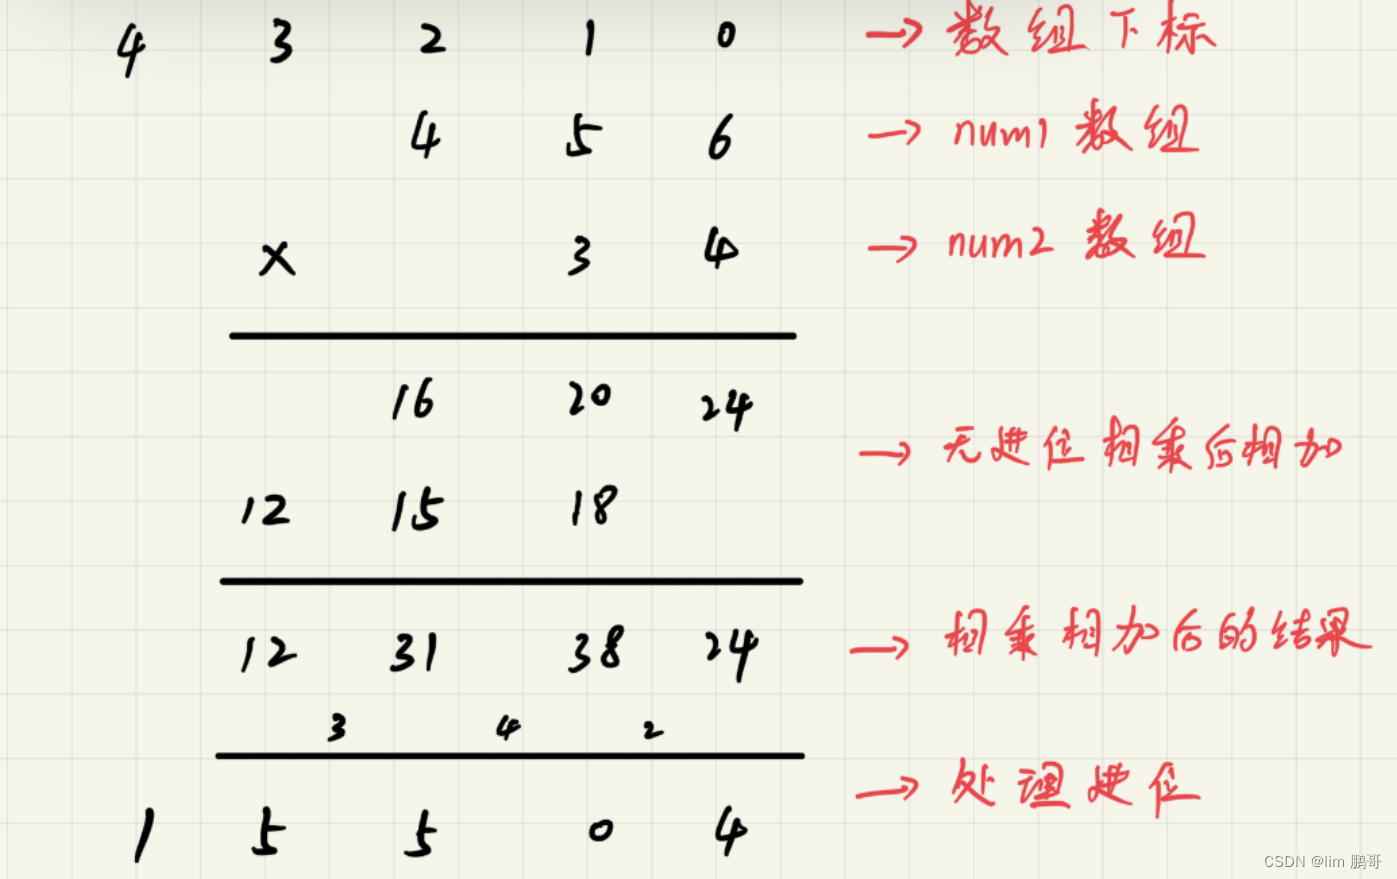 4 3 2 1 0 → 数组下标
4 5 6 → num1 数组
× 3 4 → num2 数组
16 20 24
→ 无进位相乘后相加
12 15 18
12 31 38 24 → 相乘相加后的结果
3 4 2
→ 处理进位
1 5 5 0 4
CSDN @lim 鹏哥